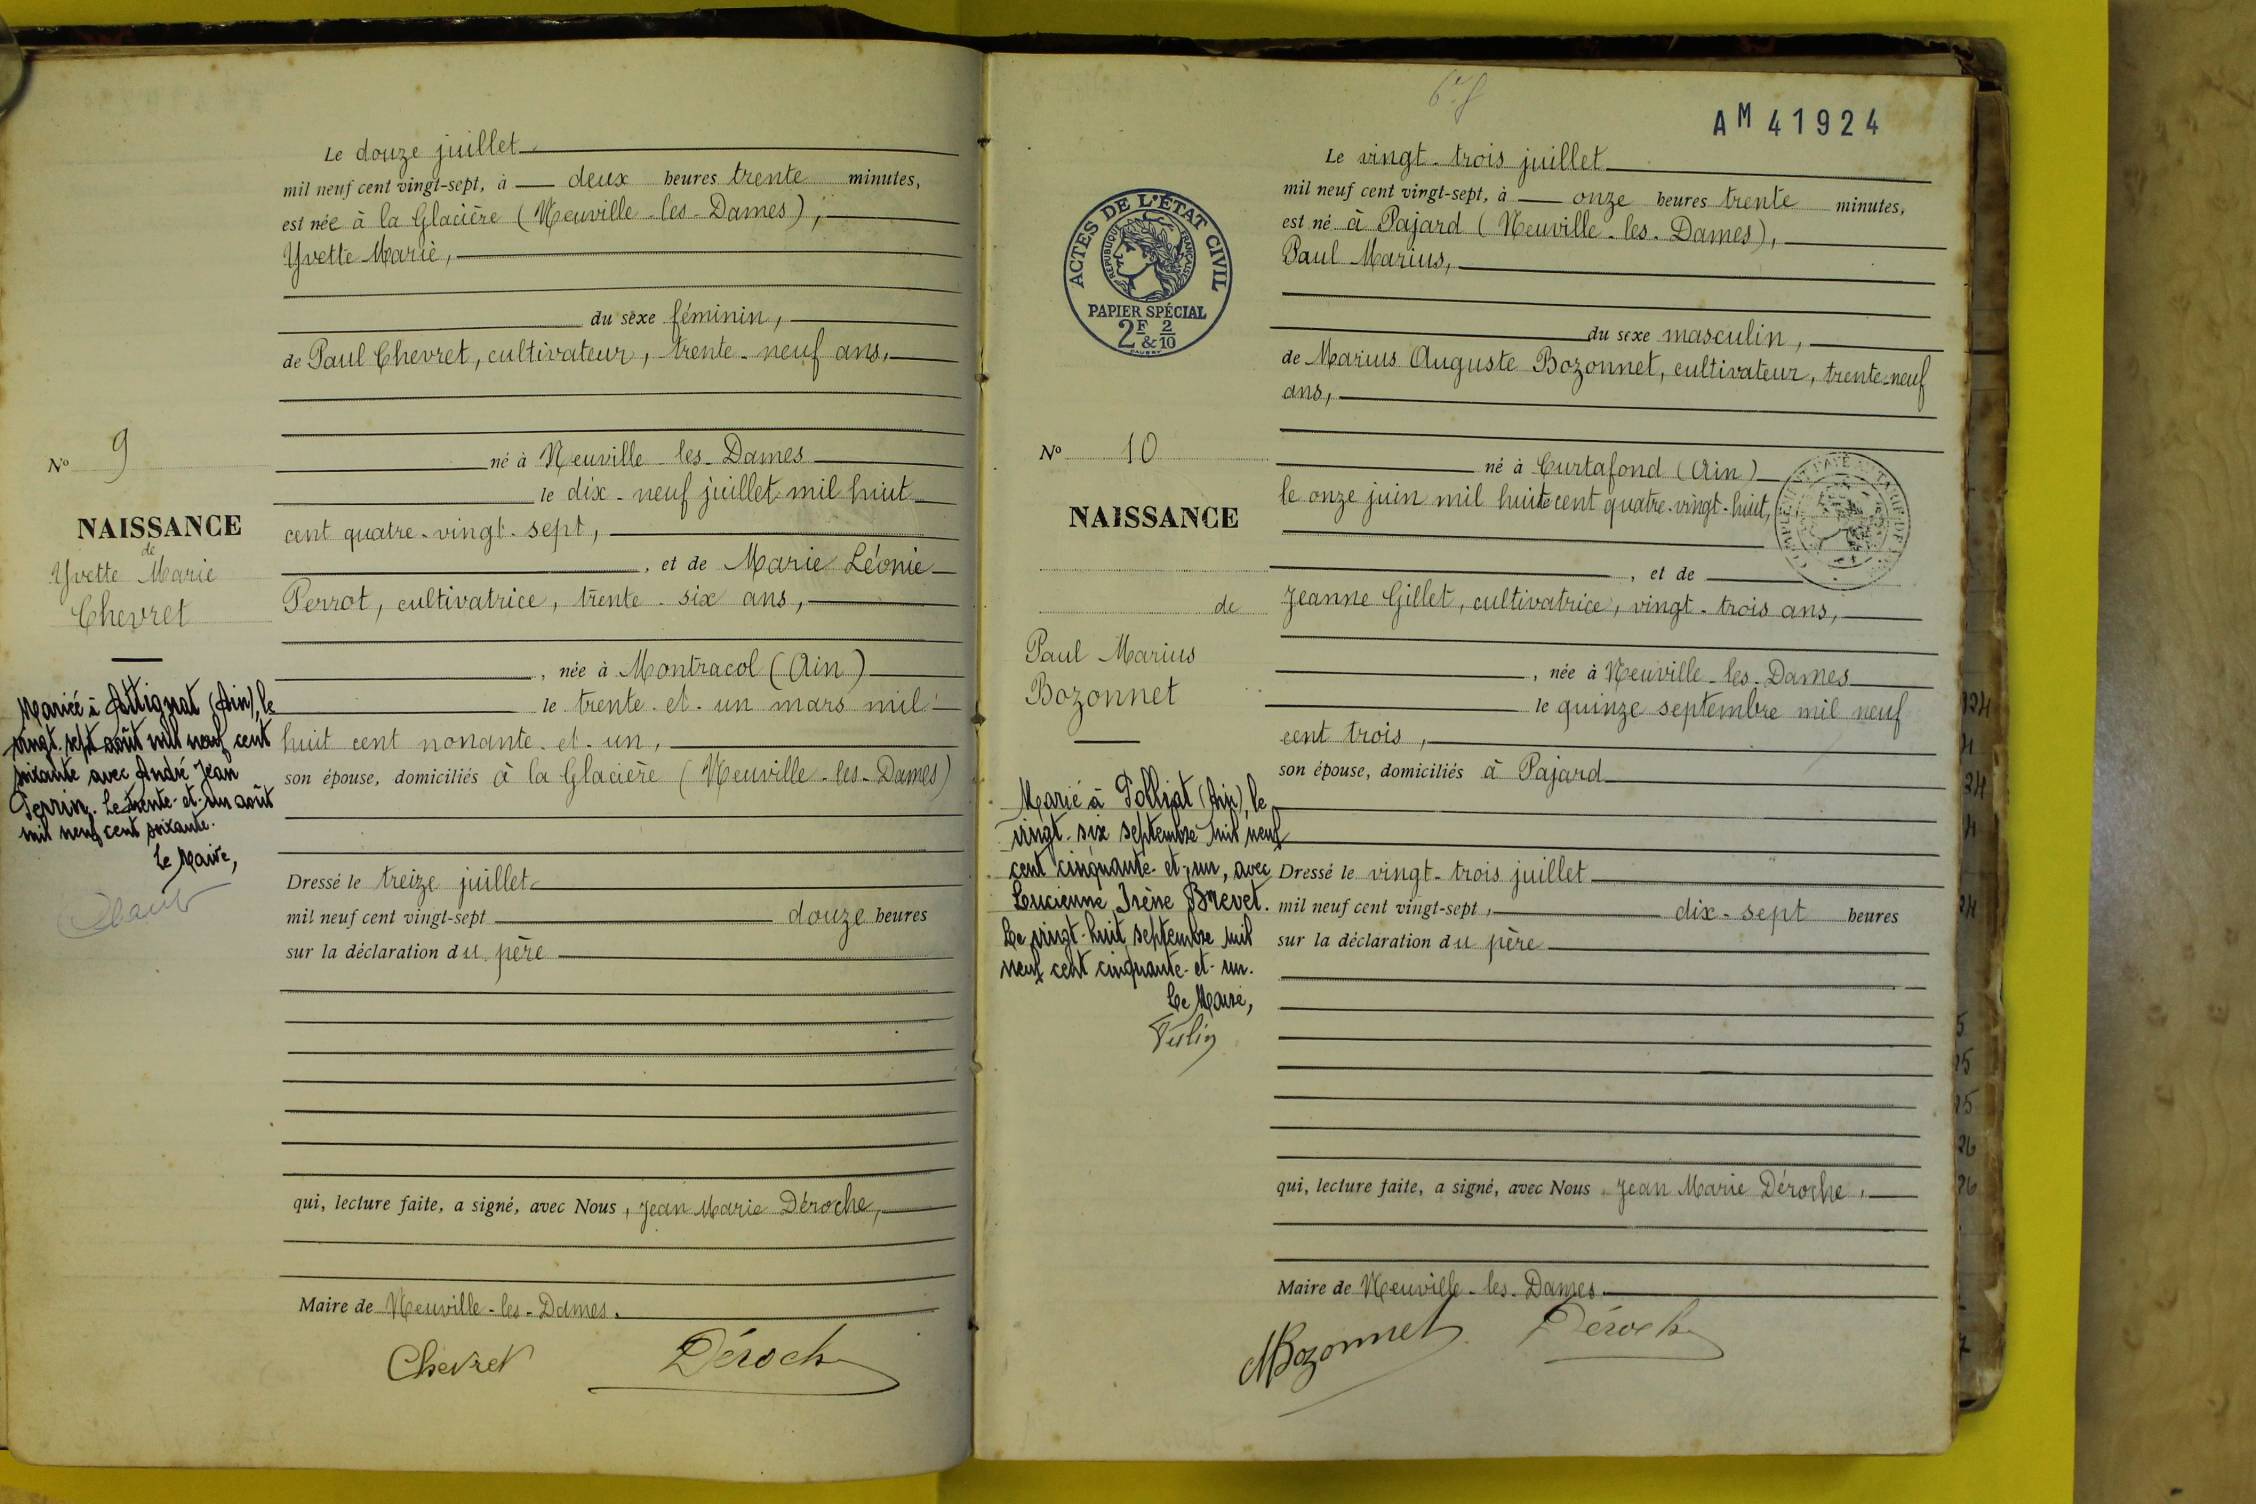 Le douze juillet
mil neuf cent vingt-sept, à deux heures trente minutes,
est née à la Glacière (Neuville-les-Dames),
Yvette Marie,
du sexe féminin,
de Paul Chevret, cultivateur, trente-neuf ans,
né à Neuville-les-Dames
le dix-neuf juillet mil huit
cent quatre-vingt-sept,
, et de Marie Léonie
Perrot, cultivatrice, trente-six ans,
, née à Montracol (Ain)
le trente-et-un mars mil
huit cent nonante-et-un,
son épouse, domiciliés à la Glacière (Neuville-les-Dames)
Dressé le treize juillet
mil neuf cent vingt-sept douze heures
sur la déclaration du père
qui, lecture faite, a signé, avec Nous, Jean Marie Déroche,
Maire de Neuville-les-Dames.
Chevret Déroche
No 9
NAISSANCE
de
Yvette Marie
Chevret
Mariée à Attignat (Ain), le
vingt-sept août mil neuf cent
soixante avec André Jean
Perrin. Le trente-et-un août
mil neuf cent soixante.
Le Maire,
AM 41924
ACTES DE L'ÉTAT CIVIL
RÉPUBLIQUE FRANÇAISE
PAPIER SPÉCIAL
2F & 2/10
Le vingt-trois juillet
mil neuf cent vingt-sept, à onze heures trente minutes,
est né à Pajard (Neuville-les-Dames),
Paul Marius,
du sexe masculin,
de Marius Auguste Bozonnet, cultivateur, trente-neuf
ans,
né à Curtafond (Ain)
le onze juin mil huit cent quatre-vingt-huit,
, et de
Jeanne Gillet, cultivatrice, vingt-trois ans,
, née à Neuville-les-Dames
le quinze septembre mil neuf
cent trois,
son épouse, domiciliés à Pajard
Dressé le vingt-trois juillet
mil neuf cent vingt-sept, dix-sept heures
sur la déclaration du père
qui, lecture faite, a signé, avec Nous, Jean Marie Déroche,
Maire de Neuville-les-Dames
MBozonnet Déroche
No 10
NAISSANCE
de
Paul Marius
Bozonnet
Marié à Polliat (Ain), le
vingt-six septembre mil neuf
cent cinquante-et-un, avec
Lucienne Irène Brevet.
Le vingt-huit septembre mil
neuf cent cinquante-et-un.
Le Maire,